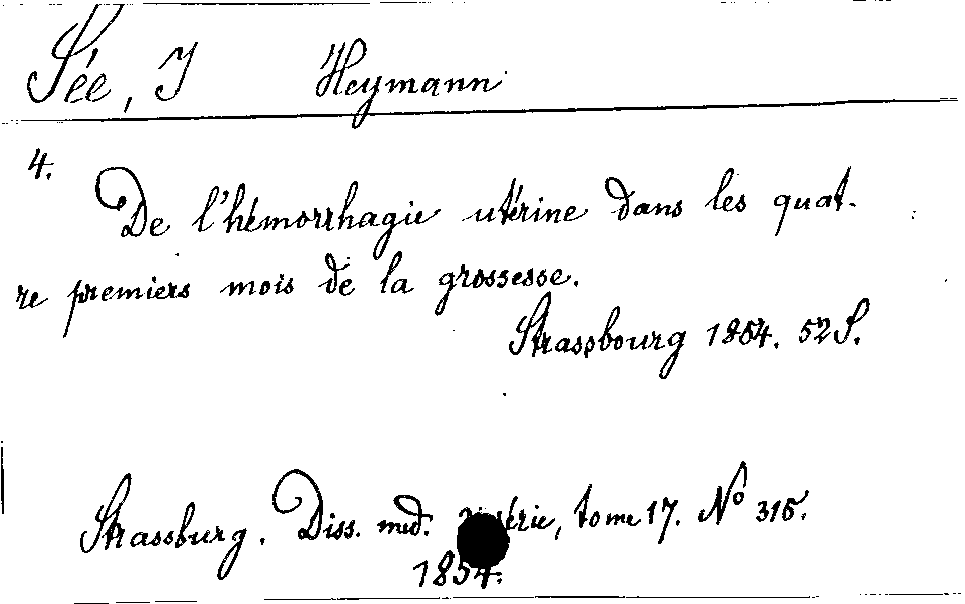 Sée, J Heymann
4.
De l'hémorrhagie utérine dans les quat-
re premiers mois de la grossesse.
Strassbourg 1854. 52 S.
Strassburg. Diss. med. série, tome 17. No 315.
1854.